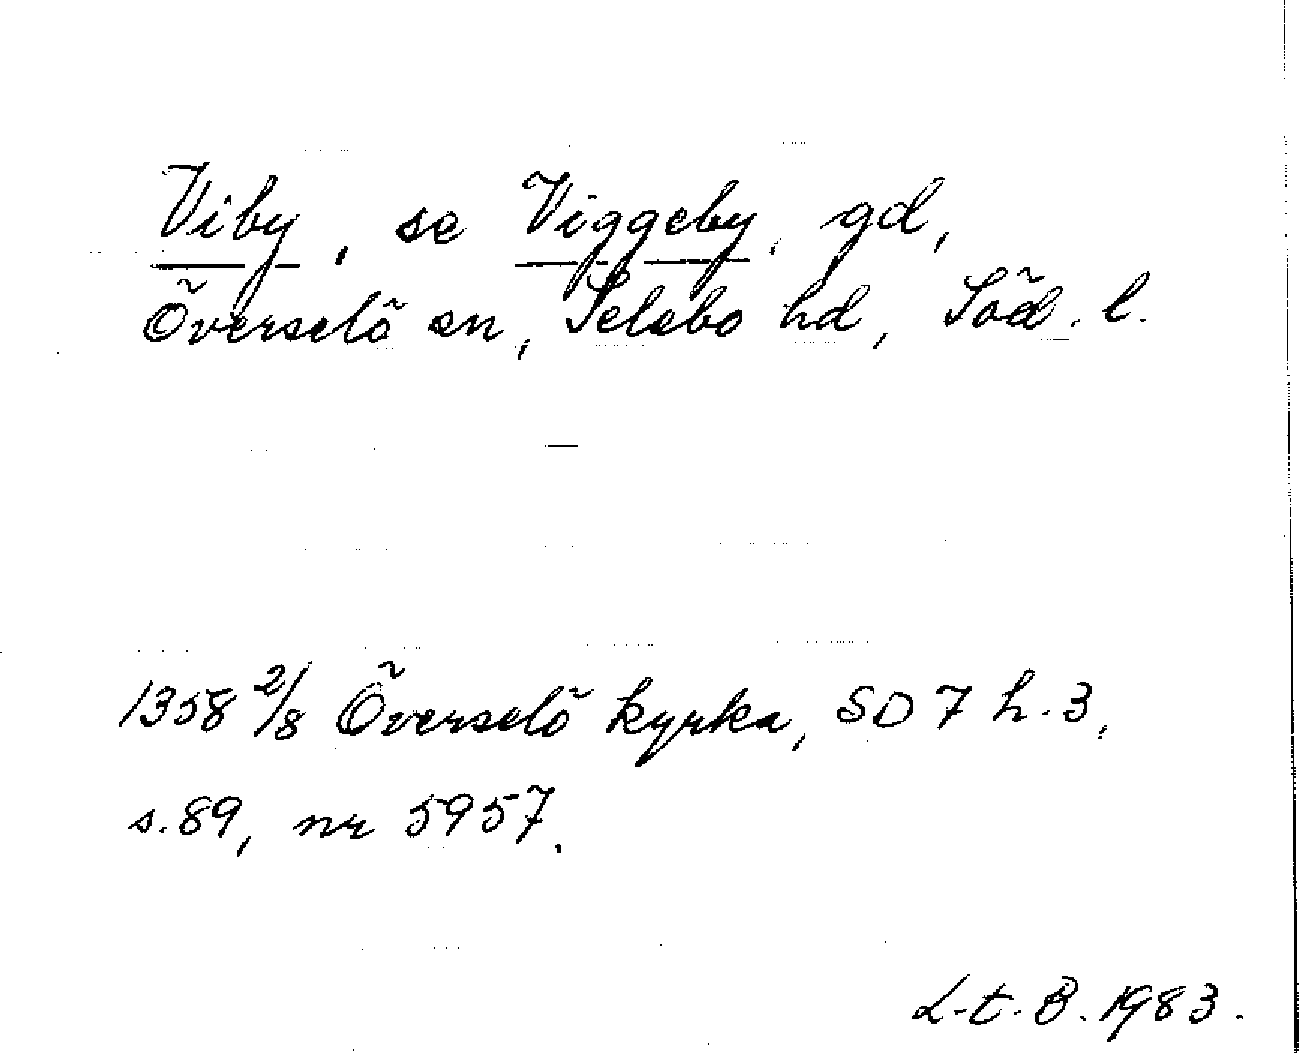 Viby, se Viggeby, gd,
Överselö sn, Selebo hd, Söd. l.
—
1358 2/8 Överselö kyrka, SD 7 h. 3,
s. 89, nr 5957.
L.t.B. 1983.